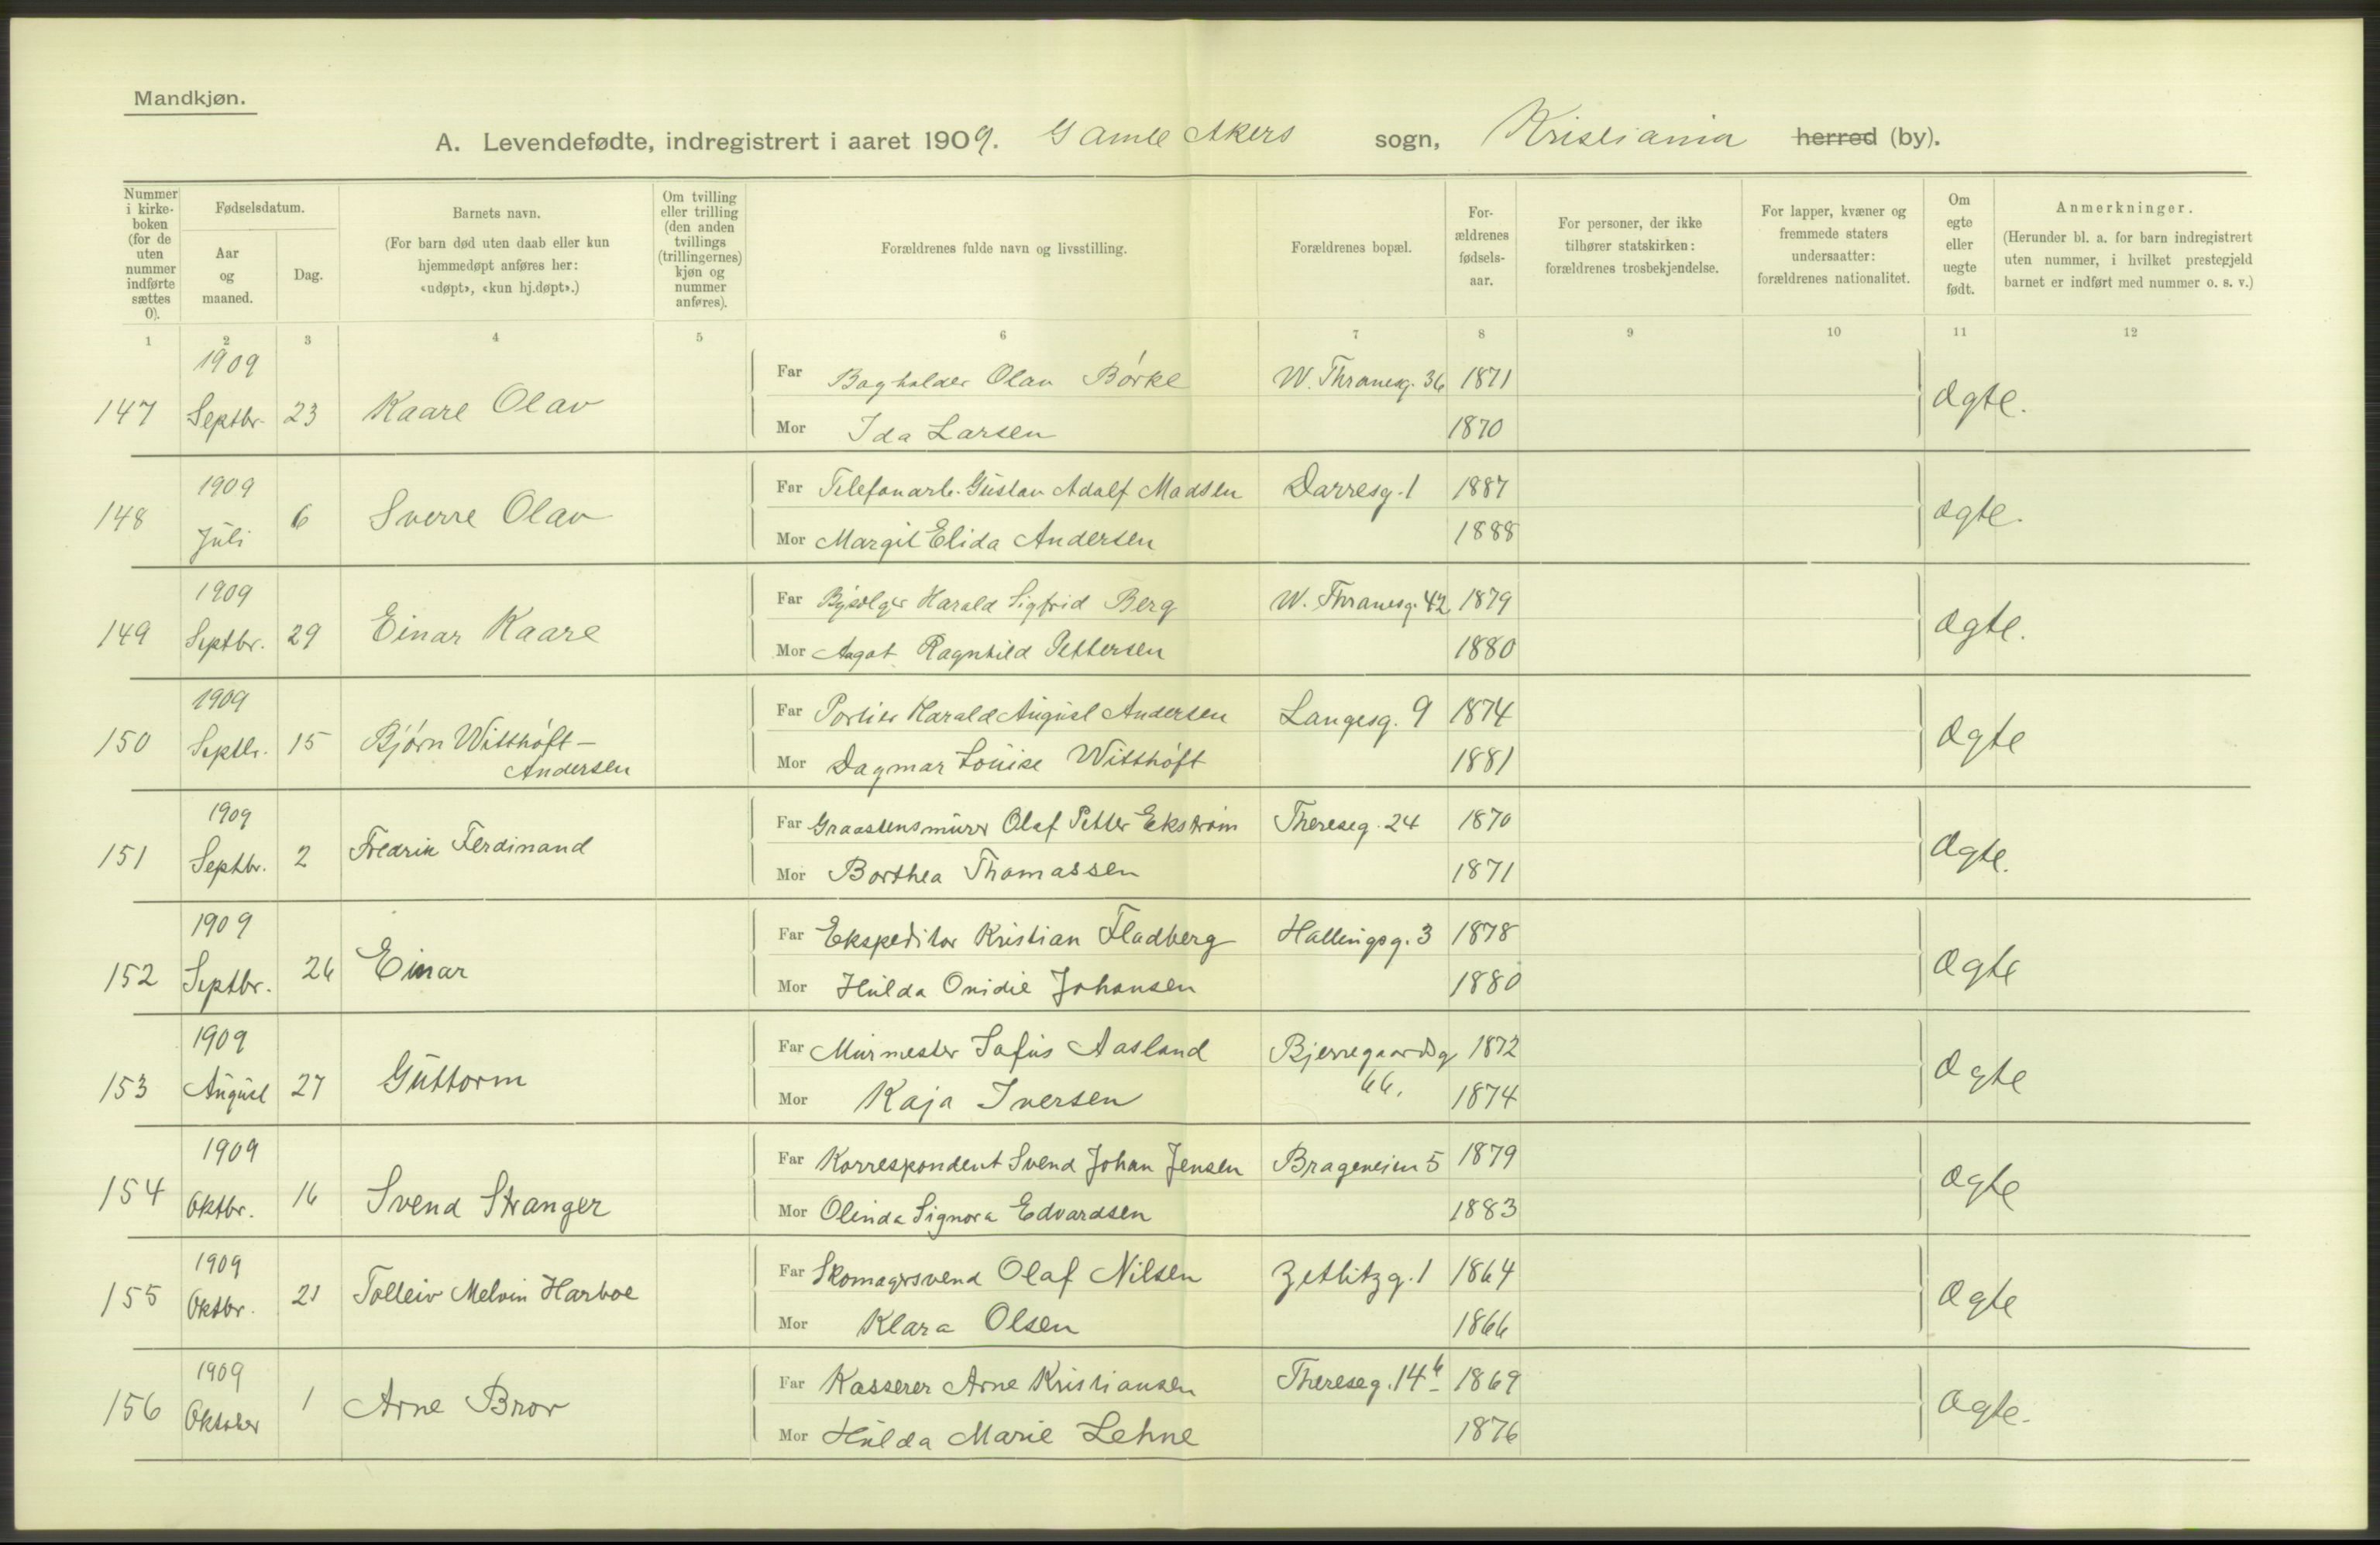 Mandkjøn.
A. Levendefødte, indregistrert i aaret 1909. Gamle Akers sogn, Kristiania herred (by).
Nummer i kirke-boken (for de uten nummer indførte sættes 0).
Fødselsdatum.
Aar og maaned.
Dag.
Barnets navn.
(For barn død uten daab eller kun hjemmedøpt anføres her: «udøpt», «kun hj.døpt».)
Om tvilling eller trilling (den anden tvillings (trillingernes) kjøn og nummer anføres).
Forældrenes fulde navn og livsstilling.
Forældrenes bopæl.
For-ældrenes fødsels-aar.
For personer, der ikke tilhører statskirken: forældrenes trosbekjendelse.
For lapper, kvæner og fremmede staters undersaatter: forældrenes nationalitet.
Om egte eller uegte født.
Anmerkninger.
(Herunder bl. a. for barn indregistrert uten nummer, i hvilket prestegjeld barnet er indført med nummer o. s. v.)
1 2 3 4 5 6 7 8 9 10 11 12
1909 Far Bagholder Olav Børke W. Thranesg. 36 1871
147 Septbr. 23 Kaare Olav Ægte.
Mor Ida Larsen 1870
1909 Far Telefonarb. Gustav Adolf Madsen Darresg. 1 1887
148 Juli 6 Sverre Olav ægte.
Mor Margit Elida Andersen 1888
1909 Far Harald Sigfrid Berg W. Thranesg. 42 1879
149 Septbr. 29 Einar Kaare Ægte.
Mor Aagot Ragnhild Pettersen 1880
1909 Far Portier Harald August Andersen Langesg. 9 1874
150 Septbr. 15 Bjørn Witthøft-Andersen Ægte
Mor Dagmar Louise Witthøft 1881
1909 Far Graastensmurer Olaf Petter Ekstrøm Thereseg. 24 1870
151 Septbr. 2 Fredrik Ferdinand Ægte.
Mor Borthea Thomassen 1871
1909 Far Ekspeditør Kristian Fladberg Hallingsg. 3 1878
152 Septbr. 26 Einar Ægte
Mor Hulda Ovidie Johansen 1880
1909 Far Murmester Sofus Aasland Bjerregaardsg 1872
153 August 27 Guttorm 66. Ægte
Mor Kaja Iversen 1874
1909 Far Korrespondent Svend Johan Jensen Brageveien 5 1879
154 Oktbr. 16 Svend Stranger Ægte
Mor Olinda Signora Edvardsen 1883
1909 Far Skomagersvend Olaf Nilsen Zetlitzg. 1 1864
155 Oktbr. 21 Tolleiv Melvin Harboe Ægte
Mor Klara Olsen 1866
1909 Far Kasserer Arne Kristiansen Thereseg. 14b 1869
156 Oktober 1 Arne Bror Ægte.
Mor Hulda Marie Lehne 1876